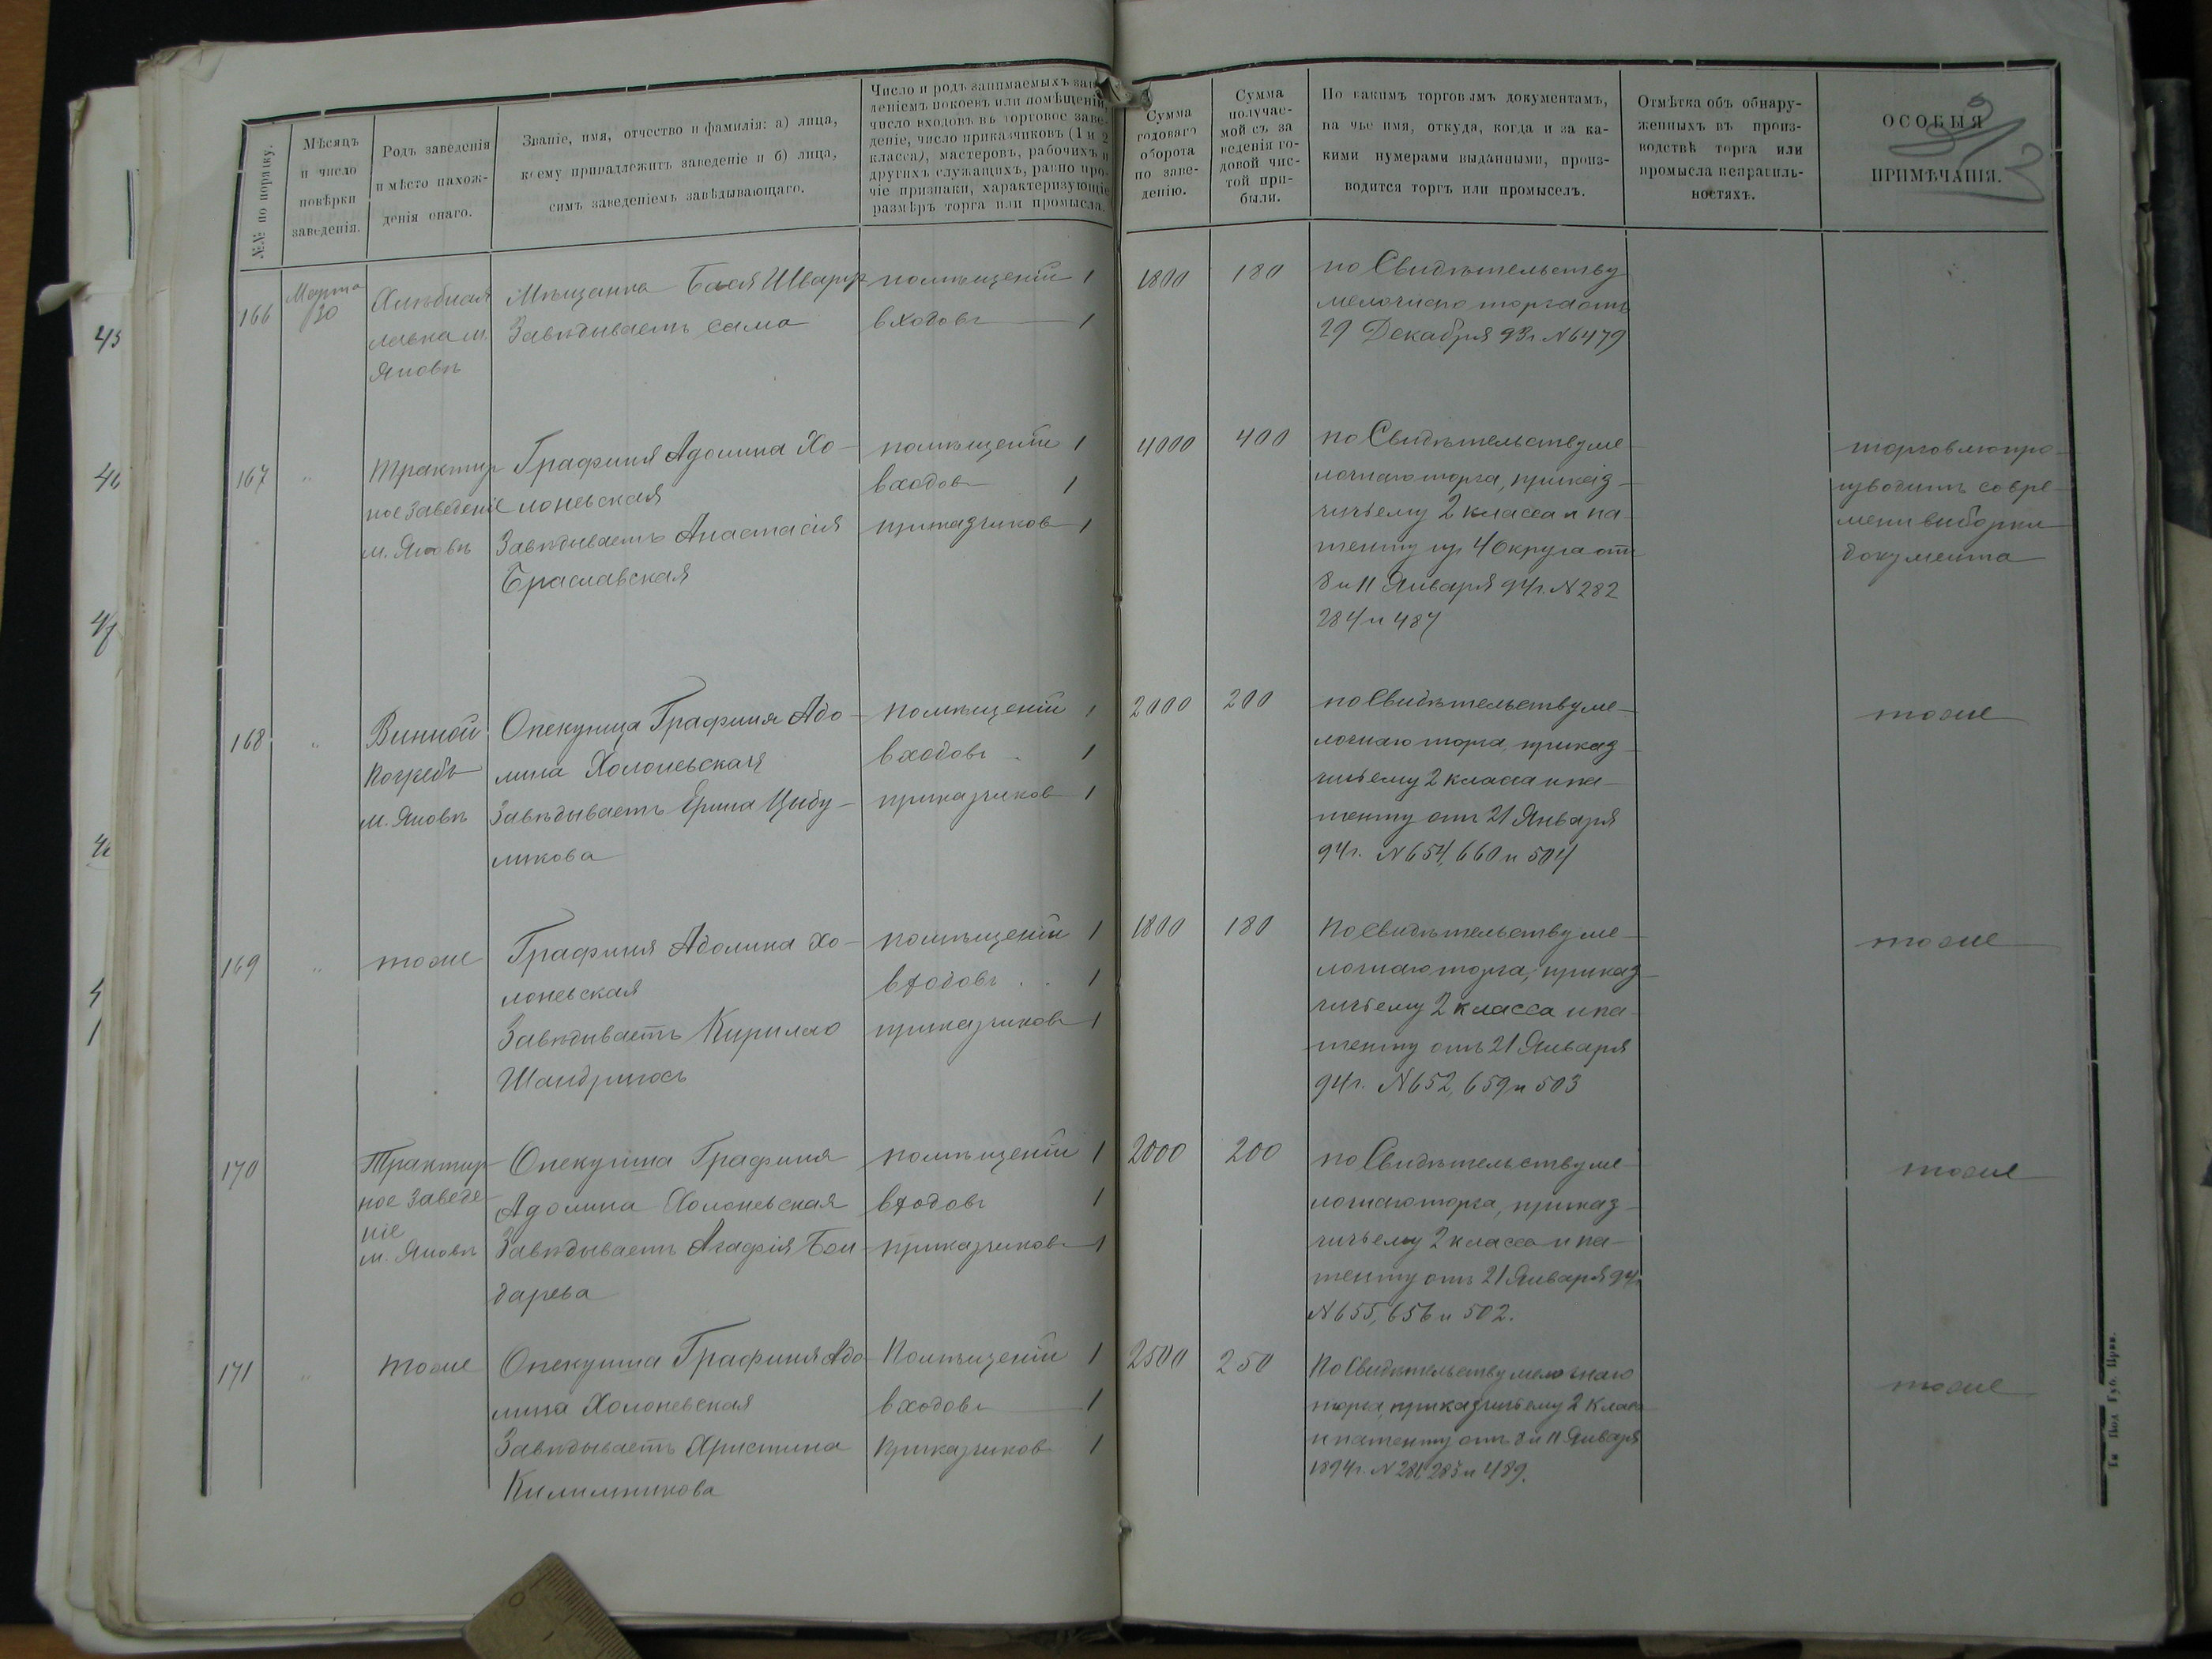 №№ по порядку.
Мѣсяцъ
и число
повѣрки
заведенія.
Родъ заведенія
и мѣсто нахож-
денія онаго.
Званіе, имя, отчество и фамилія: а) лица,
коему принадлежитъ заведеніе и б) лица,
симъ заведеніемъ завѣдывающаго.
Число и родъ занимаемыхъ заве-
деніемъ покоевъ или помѣщеній,
число входовъ въ торговое заве-
деніе, число приказчиковъ (1 и 2
класса), мастеровъ, рабочихъ и
другихъ служащихъ, равно про-
чіе признаки, характеризующіе
размѣръ торга или промысла.
Сумма
годоваго
оборота
по заве-
денію.
Сумма
получае-
мой съ за
веденія го-
довой чис-
той при-
были.
По какимъ торговымъ документамъ,
на чье имя, откуда, когда и за ка-
кими нумерами выданными, произ-
водится торгъ или промыселъ.
Отмѣтка объ обнару-
женныхъ въ произ-
водствѣ торга или
промысла неправиль-
ностяхъ.
ОСОБЫЯ
ПРИМѢЧАНІЯ.
166
Марта
30
Хлѣбная
лавка м.
Яновъ
Мѣщанка Бася Шварц
Завѣдываетъ сама
помѣщеній 1
входовъ 1
1800
180
по Свидѣтельству
мелочнаго торга отъ
29 Декабря 93г. №6479
167
"
Трактир
ное заведеніе
м. Яновъ
Графиня Адолина Хо-
лоневская
Завѣдываетъ Анастасія
Браславская
помѣщеній 1
входов 1
приказчиков 1
4000
400
по Свидѣтельству ме-
лочнаго торга, приказ-
чичьему 2 класса и па-
тенту упр 4 Округа отъ
8 и 11 Января 94г. №282
284 и 487
торговлю про-
изводитъ со вре-
мени выборки
документа
168
"
Винной
погребъ
м. Яновъ
Опекунша Графиня Адо-
лина Холоневская
Завѣдываетъ Ерина Цибу-
ликова
помѣщеній 1
входовъ 1
приказчиков 1
2000
200
по Свидѣтельству ме-
лочнаго торга, приказ-
чичьему 2 класса и па-
тенту отъ 21 Января
94г. №654, 660 и 504
тоже
169
"
тоже
Графиня Адолина Хо-
лоневская
Завѣдываетъ Кирилло
помѣщеній 1
входовъ 1
приказчиков 1
1800
180
По Свидѣтельству ме-
лочнаго торга, приказ-
чичьему 2 класса и па-
тенту отъ 21 Января
94г. №652, 659 и 503
тоже
170
Трактир-
ное заведе-
ніе
м. Яновъ
Опекунша Графиня
Адолина Холоневская
Завѣдываетъ Агафія Бон-
дарева
помѣщеній 1
входовъ 1
приказчиков 1
2000
200
по Свидѣтельству ме-
лочнаго торга, приказ-
чичьему 2 класса и па-
тенту отъ 21 Января 94г
№655, 656 и 502.
тоже
171
"
тоже
Опекунша Графиня Адо-
лина Холоневская
Завѣдываетъ Христина
Килимникова
Помѣщеній 1
входовъ 1
Приказчиков 1
2500
250
По Свидѣтельству мелочнаго
торга, приказчичьему 2 класса
и патенту отъ 8 и 11 Января
1894г. №281, 283 и 489.
тоже